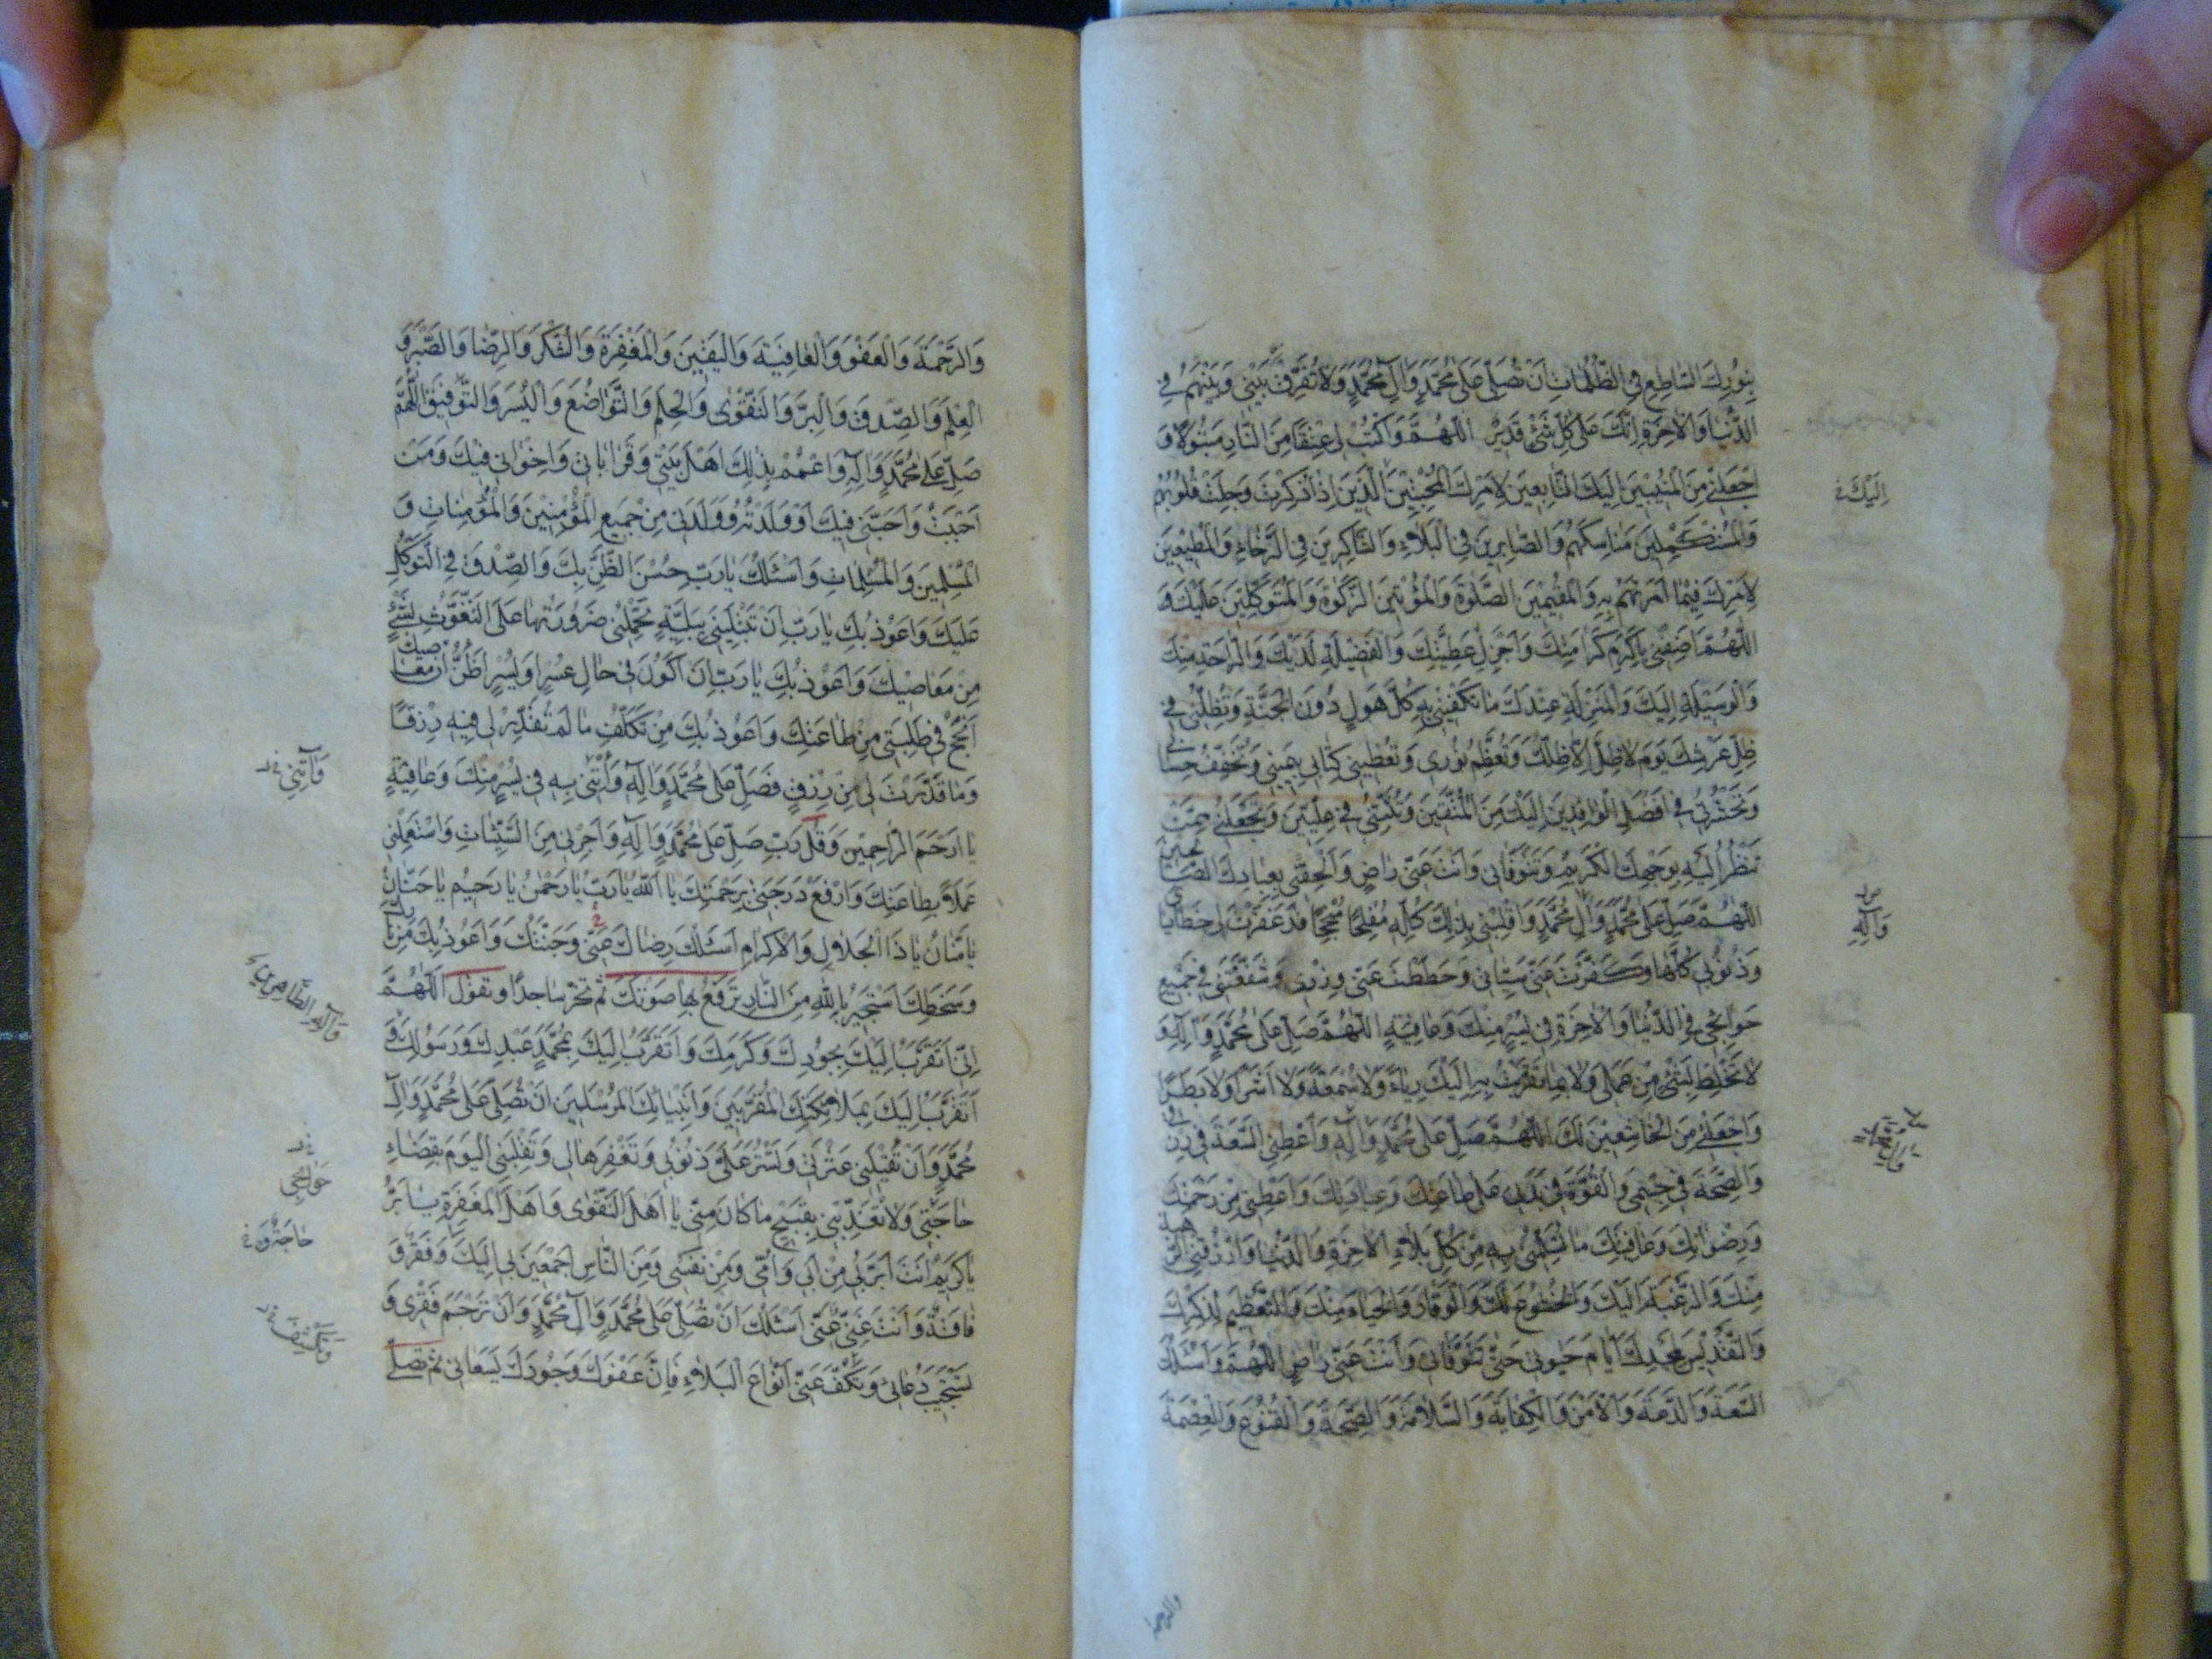 بِنُورِكَ السَّاطِعِ فِي الظُّلُمَاتِ اَنْ تُصَلِّيَ عَلَى مُحَمَّدٍ وَآلِ مُحَمَّدٍ وَلَا تُفَرِّقْ بَيْنِي وَبَيْنَهُمْ فِي
الدُّنْيَا وَالْآخِرَةِ اِنَّكَ عَلَى كُلِّ شَيْءٍ قَدِيرٌ اَللّٰهُمَّ وَاكْتُبْ لِي عِتْقًا مِنَ النَّارِ مَبْتُولًا وَ
اجْعَلْنِي مِنَ الْمُنِيبِينَ اِلَيْكَ التَّابِعِينَ لِاَمْرِكَ الْمُخْبِتِينَ الَّذِينَ اِذَا ذُكِرْتَ وَجِلَتْ قُلُوبُهُمْ
اِلَيْكَ
وَالْمُسْتَكْمِلِينَ مَنَاسِكَهُمْ وَالصَّابِرِينَ فِي الْبَلَاءِ وَالشَّاكِرِينَ فِي الرَّخَاءِ وَالْمُطِيعِينَ
لِاَمْرِكَ فِيمَا اَمَرْتَهُمْ بِهِ وَالْمُقِيمِينَ الصَّلٰوةَ وَالْمُؤْتِينَ الزَّكٰوةَ وَالْمُتَوَكِّلِينَ عَلَيْكَ وَ
اَللّٰهُمَّ اَضِفْنِي بِاَكْرَمِ كَرَامَتِكَ وَاَجْزَلِ عَطِيَّتِكَ وَالْفَضِيلَةِ لَدَيْكَ وَالرَّاحَةِ مِنْكَ
وَالْوَسِيلَةِ اِلَيْكَ وَالْمَنْزِلَةِ عِنْدَكَ مَا تَكْفِينِي بِهِ كُلَّ هَوْلٍ دُونَ الْجَنَّةِ وَتُظِلُّنِي فِي
ظِلِّ عَرْشِكَ يَوْمَ لَا ظِلَّ اِلَّا ظِلُّكَ وَتُعَظِّمُ نُورِي وَتُعْطِينِي كِتَابِي بِيَمِينِي وَتُخَفِّفُ حِسَابِي
وَتَحْشُرُنِي فِي اَفْضَلِ الْوَافِدِينَ اِلَيْكَ مِنَ الْمُتَّقِينَ وَتُثْبِتُنِي فِي عِلِّيِّينَ وَتَجْعَلُنِي مِمَّنْ
تَنْظُرُ اِلَيْهِ بِوَجْهِكَ الْكَرِيمِ وَتَتَوَفَّانِي وَاَنْتَ عَنِّي رَاضٍ وَاَلْحِقْنِي بِعِبَادِكَ الصَّالِحِينَ
اَللّٰهُمَّ صَلِّ عَلَى مُحَمَّدٍ وَآلِ مُحَمَّدٍ وَاقْلِبْنِي بِذٰلِكَ كُلِّهِ مُفْلِحًا مُنْجِحًا قَدْ غَفَرْتَ لِي خَطَايَايَ
وَآلِهِ
وَذُنُوبِي كُلَّهَا وَكَفَّرْتَ عَنِّي سَيِّئَاتِي وَحَطَطْتَ عَنِّي وِزْرِي وَشَفَّعْتَنِي فِي جَمِيعِ
حَوَائِجِي فِي الدُّنْيَا وَالْآخِرَةِ فِي يُسْرٍ مِنْكَ وَعَافِيَةٍ اَللّٰهُمَّ صَلِّ عَلَى مُحَمَّدٍ وَآلِهِ وَ
لَا تَخْلِطْ بِشَيْءٍ مِنْ عَمَلِي وَلَا بِمَا تَقَرَّبْتُ بِهِ اِلَيْكَ رِيَاءً وَلَا سُمْعَةً وَلَا اَشَرًا وَلَا بَطَرًا
وَاجْعَلْنِي مِنَ الْخَاشِعِينَ لَكَ اَللّٰهُمَّ صَلِّ عَلَى مُحَمَّدٍ وَآلِهِ وَاَعْطِنِي السَّعَةَ فِي رِزْقِي
وَالصِّحَّةَ فِي جِسْمِي وَالْقُوَّةَ فِي بَدَنِي عَلَى طَاعَتِكَ وَعِبَادَتِكَ وَاَعْطِنِي مِنْ رَحْمَتِكَ
وَرِضْوَانِكَ وَعَافِيَتِكَ مَا تُسَلِّمُنِي بِهِ مِنْ كُلِّ بَلَاءِ الْآخِرَةِ وَالدُّنْيَا وَارْزُقْنِي الرَّهْبَةَ
مِنْكَ وَالرَّغْبَةَ اِلَيْكَ وَالْخُشُوعَ لَكَ وَالْوَقَارَ وَالْحَيَاءَ مِنْكَ وَالتَّعْظِيمَ لِذِكْرِكَ
وَالتَّقْدِيسَ لِمَجْدِكَ اَيَّامَ حَيٰوتِي حَتَّى تَتَوَفَّانِي وَاَنْتَ عَنِّي رَاضٍ اَللّٰهُمَّ وَاَسْئَلُكَ
السَّعَةَ وَالدَّعَةَ وَالْاَمْنَ وَالْكِفَايَةَ وَالسَّلَامَةَ وَالصِّحَّةَ وَالْقُنُوعَ وَالْعِصْمَةَ
والرحمة
وَالرَّحْمَةَ وَالْعَفْوَ وَالْعَافِيَةَ وَالْيَقِينَ وَالْمَغْفِرَةَ وَالشُّكْرَ وَالرِّضَا وَالصَّبْرَ وَ
الْعِلْمَ وَالصِّدْقَ وَالْبِرَّ وَالتَّقْوٰى وَالْحِلْمَ وَالتَّوَاضُعَ وَالْيُسْرَ وَالتَّوْفِيقَ اَللّٰهُمَّ
صَلِّ عَلَى مُحَمَّدٍ وَآلِهِ وَاعْمُمْ بِذٰلِكَ اَهْلَ بَيْتِي وَقَرَابَاتِي وَاِخْوَانِي فِيكَ وَمَنْ
اَحْبَبْتُ وَاَحَبَّنِي فِيكَ اَوْ وَلَدْتُهُ وَوَلَدَنِي مِنْ جَمِيعِ الْمُؤْمِنِينَ وَالْمُؤْمِنَاتِ وَ
الْمُسْلِمِينَ وَالْمُسْلِمَاتِ وَاَسْئَلُكَ يَا رَبِّ حُسْنَ الظَّنِّ بِكَ وَالصِّدْقَ فِي التَّوَكُّلِ
عَلَيْكَ وَاَعُوذُ بِكَ يَا رَبِّ اَنْ تَبْتَلِيَنِي بِبَلِيَّةٍ تَحْمِلُنِي ضَرُورَتُهَا عَلَى التَّغَوُّثِ بِشَيْءٍ
مِنْ مَعَاصِيكَ وَاَعُوذُ بِكَ يَا رَبِّ اَنْ اَكُونَ فِي حَالِ عُسْرٍ اَوْ يُسْرٍ اَظُنُّ اَنَّ مَعَاصِيكَ
اَنْجَحُ فِي طَلِبَتِي مِنْ طَاعَتِكَ وَاَعُوذُ بِكَ مِنْ تَكَلُّفِ مَا لَمْ تُقَدِّرْ لِي فِيهِ رِزْقًا
وَمَا قَدَّرْتَ لِي مِنْ رِزْقٍ فَصَلِّ عَلَى مُحَمَّدٍ وَآلِهِ وَأْتِنِي بِهِ فِي يُسْرٍ مِنْكَ وَعَافِيَةٍ
وَآتِنِي
يَا اَرْحَمَ الرَّاحِمِينَ وَقُلْ رَبِّ صَلِّ عَلَى مُحَمَّدٍ وَآلِهِ وَاَجِرْنِي مِنَ السَّيِّئَاتِ وَاسْتَعْمِلْنِي
عَمَلًا بِطَاعَتِكَ وَارْفَعْ دَرَجَتِي بِرَحْمَتِكَ يَا اَللّٰهُ يَا رَبِّ يَا رَحْمٰنُ يَا رَحِيمُ يَا حَنَّانُ
يَا مَنَّانُ يَا ذَا الْجَلَالِ وَالْاِكْرَامِ اَسْئَلُكَ رِضَاكَ عَنِّي وَجَنَّتَكَ وَاَعُوذُ بِكَ مِنْ نَارِكَ
وَسَخَطِكَ اَسْتَجِيرُ بِاللّٰهِ مِنَ النَّارِ تَرْفَعُ بِهَا صَوْتَكَ ثُمَّ تَخِرُّ سَاجِدًا وَتَقُولُ اَللّٰهُمَّ
وَآلِهِ الطَّاهِرِينَ
اِنِّي اَتَقَرَّبُ اِلَيْكَ بِجُودِكَ وَكَرَمِكَ وَاَتَقَرَّبُ اِلَيْكَ بِمُحَمَّدٍ عَبْدِكَ وَرَسُولِكَ وَ
اَتَقَرَّبُ اِلَيْكَ بِمَلَائِكَتِكَ الْمُقَرَّبِينَ وَاَنْبِيَائِكَ الْمُرْسَلِينَ اَنْ تُصَلِّيَ عَلَى مُحَمَّدٍ وَآلِ
مُحَمَّدٍ وَاَنْ تُقِيلَنِي عَثْرَتِي وَتَسْتُرَ عَلَيَّ ذُنُوبِي وَتَغْفِرَهَا لِي وَتَقْلِبَنِي الْيَوْمَ بِقَضَاءِ
حَوَائِجِي
حَاجَتِي وَلَا تُعَذِّبْنِي بِقَبِيحِ مَا كَانَ مِنِّي يَا اَهْلَ التَّقْوٰى وَاَهْلَ الْمَغْفِرَةِ يَا بَرُّ
يَا كَرِيمُ اَنْتَ اَبَرُّ بِي مِنْ اَبِي وَاُمِّي وَمِنْ نَفْسِي وَمِنَ النَّاسِ اَجْمَعِينَ بِي اِلَيْكَ فَقْرٌ وَ
حَاجَةٌ وَ
فَاقَةٌ وَاَنْتَ غَنِيٌّ عَنِّي اَسْئَلُكَ اَنْ تُصَلِّيَ عَلَى مُحَمَّدٍ وَآلِ مُحَمَّدٍ وَاَنْ تَرْحَمَ فَقْرِي وَ
تَسْتَجِيبَ دُعَائِي وَتَكُفَّ عَنِّي اَنْوَاعَ الْبَلَاءِ فَاِنَّ عَفْوَكَ وَجُودَكَ يَسَعَانِي ثُمَّ تُصَلِّي